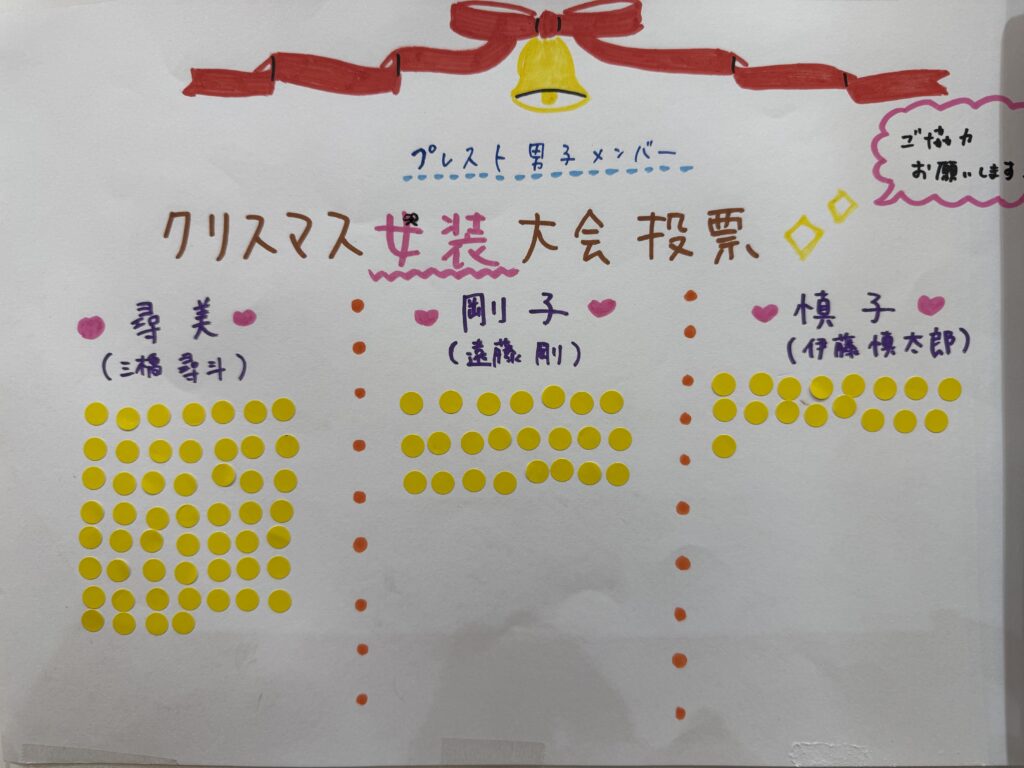 プレスト男子メンバー
ご協力
お願いします
クリスマス女装大会投票
尋美
(三橋尋斗)
剛子
(遠藤剛)
慎子
(伊藤慎太郎)